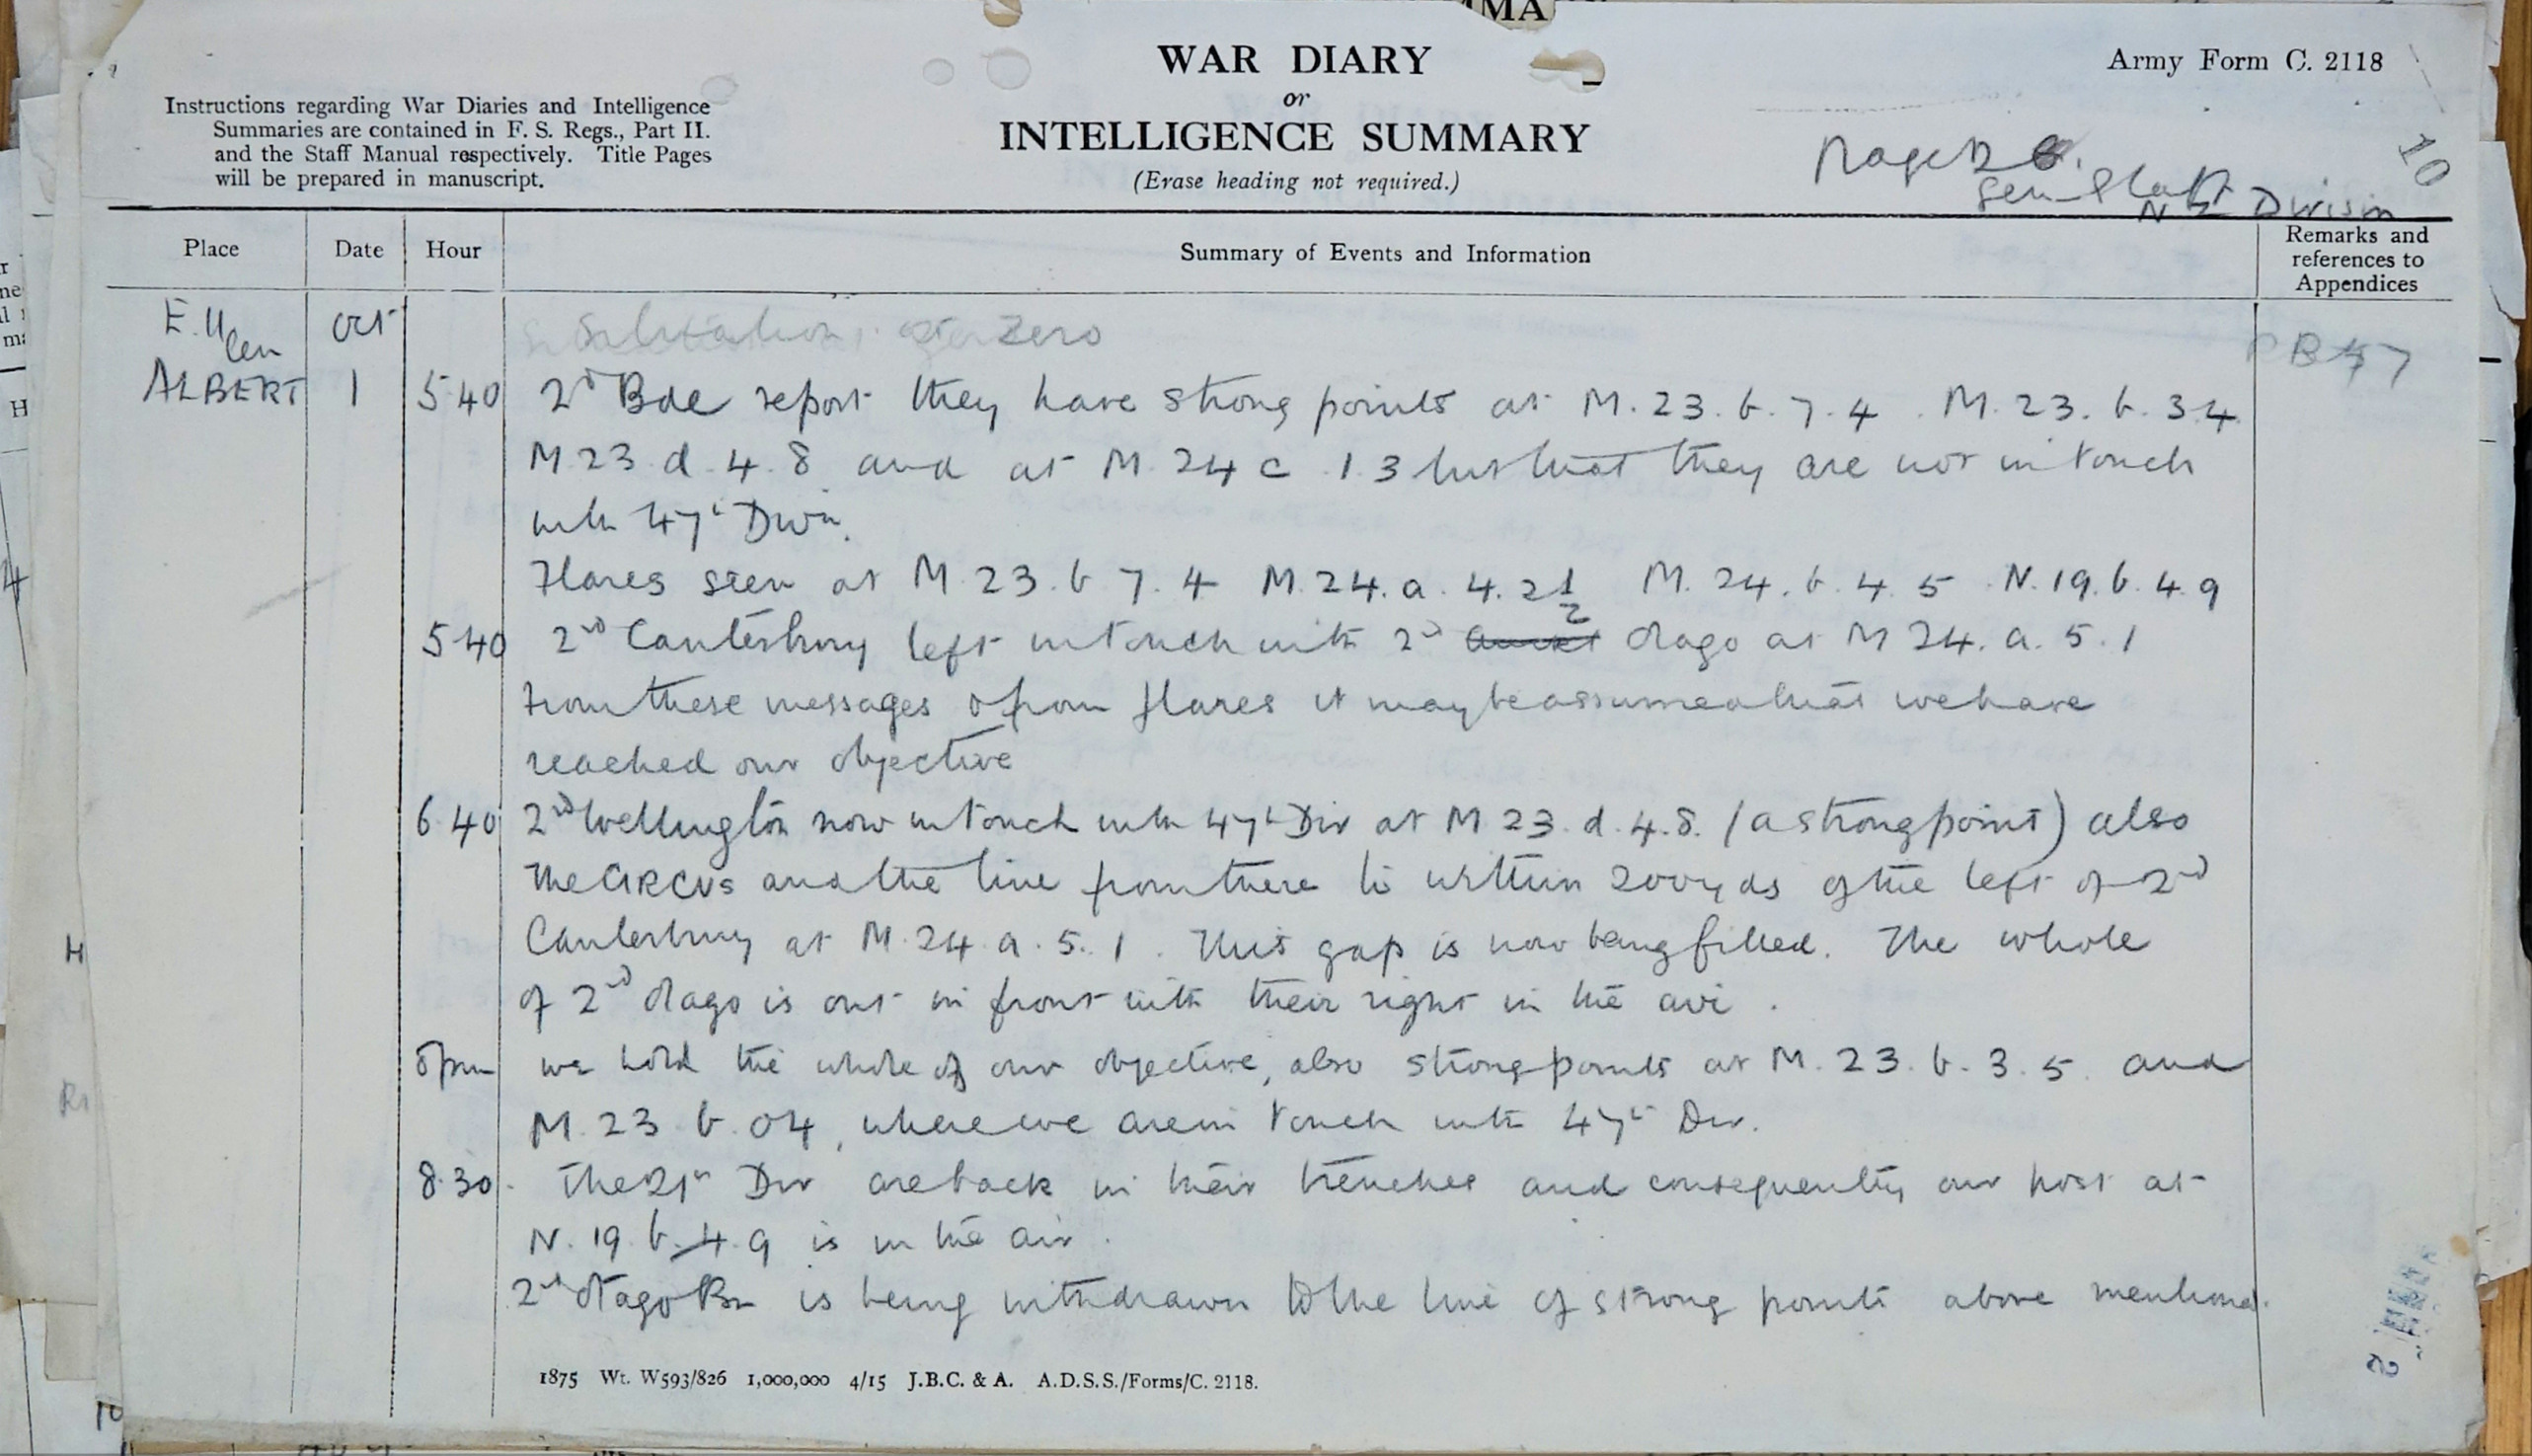 WAR DIARY
or
INTELLIGENCE SUMMARY
(Erase heading not required.)
Army Form C. 2118
Instructions regarding War Diaries and Intelligence
Summaries are contained in F. S. Regs., Part II.
and the Staff Manual respectively. Title Pages
will be prepared in manuscript.
Page
Gen Staff
NZ Division
10
Place Date Hour Summary of Events and Information Remarks and references to Appendices
Oct Situation at Zero
ALBERT 1 5.40 2nd Bde report they have strong points at M.23.b.7.4. M.23.b.3 4
M.23.d.4.8 and at M.24 c 1.3 but that they are not in touch
with 47th Divn.
Flares seen at M.23.b 7.4 M.24.a.4.2½ M.24.b.4.5 N.19.b.4.9
5.40 2nd Canterbury left in touch with 2nd Otago at M 24.a.5.1
From these messages & from flares it may be assumed that we have
reached our objective
6.40 2nd Wellington now in touch with 47th Div at M 23.d.4.8. (a strong point) also
the CIRCUS and the line from there to within 200 yds of the left of 2nd
Canterbury at M.24.a.5.1. This gap is now being filled. The whole
of 2nd Otago is out in front with their right in the air.
8pm we hold the whole of our objective, also strong points at M.23.b.3.5. and
M.23 b.04, where we are in touch with 47th Div.
8.30. The 21st Div are back in their trenches and consequently our post at
N.19.b.4.9 is in the air.
2nd Otago Bn is being withdrawn to the line of strong points above mentioned.
1875 Wt. W593/826 1,000,000 4/15 J.B.C. & A. A.D.S.S./Forms/C. 2118.